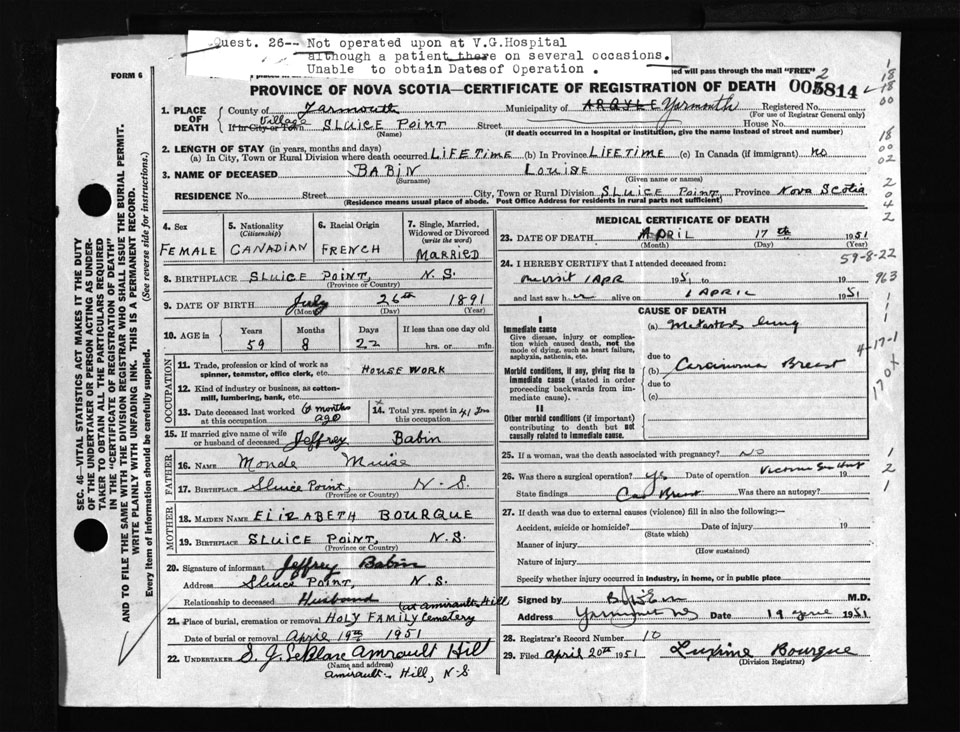 Quest. 26-- Not operated upon at V.G.Hospital
although a patient there on several occasions.
Unable to obtain Dates of Operation .
FORM 6
ed will pass through the mail "FREE"
2
PROVINCE OF NOVA SCOTIA—CERTIFICATE OF REGISTRATION OF DEATH
005814
1. PLACE OF DEATH
County of Yarmouth Municipality of ARGYLE Yarmouth Registered No.
(For use of Registrar General only)
Village
If in City or Town SLUICE POINT Street House No.
(Name) (If death occurred in a hospital or institution, give the name instead of street and number)
2. LENGTH OF STAY (in years, months and days)
(a) In City, Town or Rural Division where death occurred LIFETIME (b) In Province LIFETIME (c) In Canada (if immigrant) no
3. NAME OF DECEASED BABIN LOUISE
(Surname) (Given name or names)
RESIDENCE No. Street City, Town or Rural Division SLUICE POINT Province NOVA SCOTIA
(Residence means usual place of abode. Post Office Address for residents in rural parts not sufficient)
4. Sex FEMALE
5. Nationality (Citizenship) CANADIAN
6. Racial Origin FRENCH
7. Single, Married, Widowed or Divorced (write the word) MARRIED
8. BIRTHPLACE SLUICE POINT, N.S.
(Province or Country)
9. DATE OF BIRTH July 26th 1891
(Month) (Day) (Year)
10. AGE in Years Months Days If less than one day old
59 8 22 hrs. or min.
OCCUPATION
11. Trade, profession or kind of work as spinner, teamster, office clerk, etc. HOUSE WORK
12. Kind of industry or business, as cotton-mill, lumbering, bank, etc.
13. Date deceased last worked at this occupation 6 months ago
14. Total yrs. spent in this occupation 41 yrs
15. If married give name of wife or husband of deceased Jeffrey Babin
FATHER
16. NAME Monde Muise
17. BIRTHPLACE Sluice Point, N-S.
(Province or Country)
MOTHER
18. MAIDEN NAME ELIZABETH BOURQUE
19. BIRTHPLACE SLUICE POINT, N.S.
(Province or Country)
20. Signature of informant Jeffrey Babin
Address Sluice Point, N.S.
Relationship to deceased Husband
(at Amirault Hill
21. Place of burial, cremation or removal HOLY FAMILY Cemetery
Date of burial or removal April 19th 1951
22. UNDERTAKER S. J. LeBlanc Amrault Hill
(Name and address)
Amirault- Hill, N-S
MEDICAL CERTIFICATE OF DEATH
23. DATE OF DEATH APRIL 17th 1951
(Month) (Day) (Year)
59-8-22
24. I HEREBY CERTIFY that I attended deceased from:
1 APR 1951 to 19
963
and last saw h er alive on 1 APRIL 1951
CAUSE OF DEATH
I
Immediate cause
Give disease, injury or complication which caused death, not the mode of dying, such as heart failure, asphyxia, asthenia, etc.
(a) Metastasis lung
due to
Morbid conditions, if any, giving rise to immediate cause (stated in order proceeding backwards from immediate cause).
(b) Carcinoma Breast
due to
(c)
4-17-1
170X
II
Other morbid conditions (if important) contributing to death but not causally related to immediate cause.
25. If a woman, was the death associated with pregnancy? NO
26. Was there a surgical operation? Yes Date of operation
State findings Ca Breast Was there an autopsy?
27. If death was due to external causes (violence) fill in also the following:-
Accident, suicide or homicide? Date of injury 19
(State which)
Manner of injury
(How sustained)
Nature of injury
Specify whether injury occurred in industry, in home, or in public place
Signed by M.D.
Address Yarmouth NS Date 19 1951
28. Registrar's Record Number 10
29. Filed April 20th 1951 Bourque
(Division Registrar)
SEC. 46—VITAL STATISTICS ACT MAKES IT THE DUTY
OF THE UNDERTAKER OR PERSON ACTING AS UNDER-
TAKER TO OBTAIN ALL THE PARTICULARS REQUIRED
IN THE "CERTIFICATE OF REGISTRATION OF DEATH"
AND TO FILE THE SAME WITH THE DIVISION REGISTRAR WHO SHALL ISSUE THE BURIAL PERMIT.
WRITE PLAINLY WITH UNFADING INK. THIS IS A PERMANENT RECORD.
Every item of information should be carefully supplied. (See reverse side for instructions.)